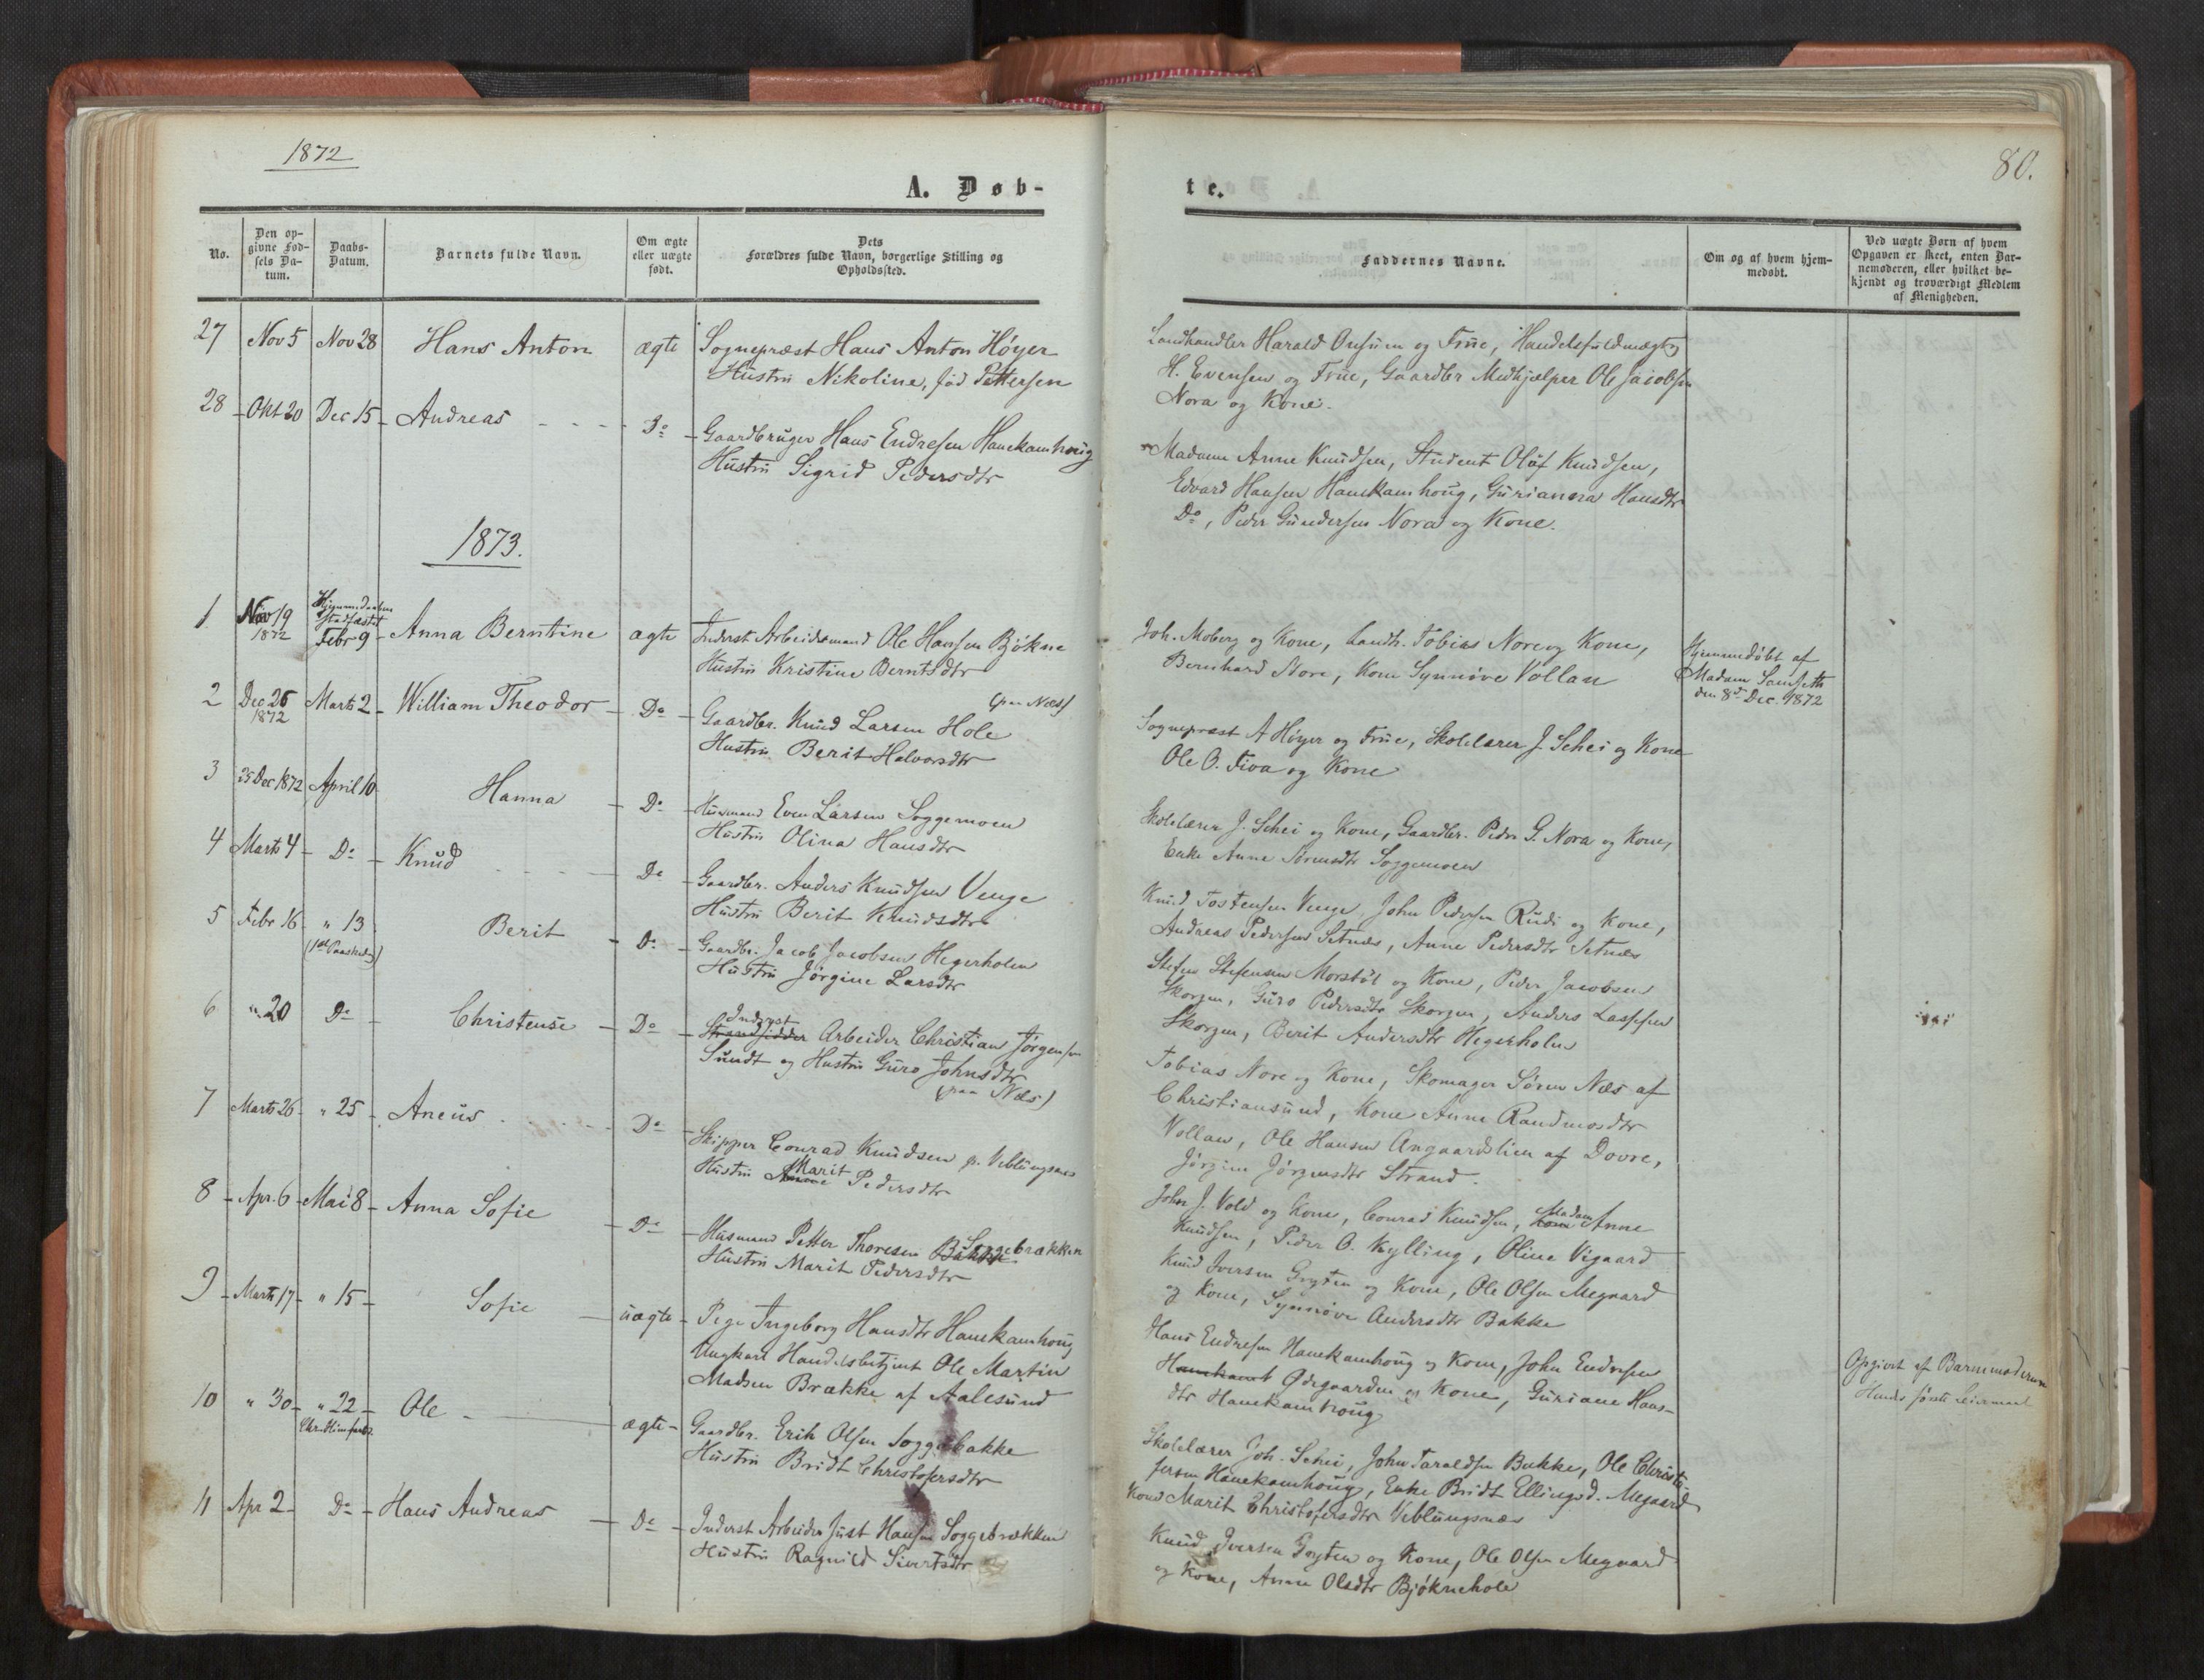 1872
80.
A. Døb-
te.
No.
Den op-
givne Fød-
sels Da-
tum.
Daabs-
Datum.
Barnets fulde Navn.
Om ægte
eller uægte
født.
Dets
Forældres fulde Navn, borgerlige Stilling og
Opholdssted.
Faddernes Navne.
Om og af hvem hjem-
medøbt.
Ved uægte Børn af hvem
Opgaven er skeet, enten Bar-
nemoderen, eller hvilket be-
kjendt og troværdigt Medlem
af Menigheden.
27 Nov 5 Nov 28 Hans Anton ægte Sognepræst Hans Anton Høyer
Hustru Nikoline, fød Pettersen
Landhandler Harald Onsum og Frue, Handelsfuldmægtig
H. Evensen og Frue, Gaardbr Medhjælper Ole Jacobsen
Nora og Kone.
28 - Okt 20 Dec 15 - Andreas - - - - Do - Gaardbruger Hans Endresen Hanekamhoug
Hustru Sigrid Pedersdtr
Madame Anne Knudsen, Student Oluf Knudsen,
Edvard Hansen Hanekamhoug, Gurianna Hansdtr
Do, Peder Gundersen Nora og Kone.
1873.
1 Nov 19
1872
Hjemmedaaben
stadfæstet
Febr 9 - Anna Berntine ægte Inderst Arbeidsmand Ole Hansen Bjökne
Hustru Kristine Berntsdtr
(paa Næs)
Joh. Moberg og Kone, Landh. Tobias Nore og Kone,
Bernhard Nore, Kone Synnøve Vollan
Hjemmedøbt af
Madam Samseth
den 8de Dec. 1872
2 Dec 26
1872 Marts 2 - William Theodor - Do - Gaardbr. Knud Larsen Hole
Hustru Berit Halvorsdtr
Sognepræst A Høyer og Frue, Skolelærer J. Schei og Kone
Ole O. Fiva og Kone
3 25 Dec 1872 April 10 Hanna - Do - Husmand Even Larsen Soggemoen
Hustru Olina Hansdtr
Skolelærer J. Schei og Kone, Gaardbr. Peder G. Nora og Kone,
Enke Anne Sörensdtr Soggemoen
4 Marts 4 - Do - Knud - - - - Do - Gaardbr. Anders Knudsen Venge
Hustru Berit Knudsdtr
Knud Tostensen Venge, John Pedersen Rudi og Kone,
Andreas Pedersen Setnæs, Anne Pedersdtr Setnæs
5 Febr 16 " 13
(1ste Paaskedag) Berit - Do - Gaardbr. Jacob Jacobsen Hegerholm
Hustru Jørgine Larsdtr
Stefen Stefensen Morstöl og Kone, Peder Jacobsen
Skorgen, Guro Pedersdtr Skorgen, Anders Lassesen
Skorgen, Berit Andersdtr Hegerholm
6 " 20 Do - Christense - Do - Strandsidder Inderst Arbeider Christian Jørgensen
Sundt og Hustru Guro Johnsdtr
(paa Næs)
Tobias Nore og Kone, Skomager Sören Næs af
Christiansund, Kone Anne Raudmosdtr
Vollan, Ole Hansen Angaardslien af Dovre,
Jörgine Jörgensdtr Strand.
7 Marts 26 - " 25 - Aneus - - - - Do - Skipper Conrad Knudsen p. Veblungsnæs
Hustru Anne Marit Pedersdtr
John J. Vold og Kone, Conrad Knudsen, Kone Madam Anne
Knudsen, Peder O. Kylling, Oline Vigaard
8 - Apr. 6 - Mai 8 - Anna Sofie - Do - Husmand Petter Thoresen Bakke Soggebrækken
Hustru Marit Pedersdtr
Knud Iversen Gryten og Kone, Ole Olsen Megaard
og Kone, Synnöve Andersdtr Bakke
9 - Marts 17 - " 15 - Sofie - uægte - Pige Ingeborg Hansdtr Hanekamhoug
Ungkarl Handelsbetjent Ole Martin
Madsen Brække af Aalesund
Hans Endresen Hanekamhoug og Kone, John Endresen
Hanekamh Ødegaarden og Kone, Guriane Hans-
dtr Hanekamhoug
Opgivet af Barnemoderen
Hendes første Leiermaal
10 " 30 - " 22 -
Chr. Himmfartsd. Ole - ægte - Gaardbr. Erik Olsen Soggebakke
Hustru Bridt Christofersdtr
Skolelærer Joh. Schei, John Taraldsen Bakke, Ole Christo-
fersen Hanekamhoug, Enke Bridt Ellingsd. Megaard
Kone Marit Christofersdtr Veblungsnæs
11 Apr 2 - Do - Hans Andreas - Do - Inderst Arbeider Just Hansen Soggebrækken
Hustru Ragnild Sivertsdtr
Knud Iversen Gryten og Kone, Ole Olsen Megaard
og Kone, Anne Olsdtr Bjöknehole